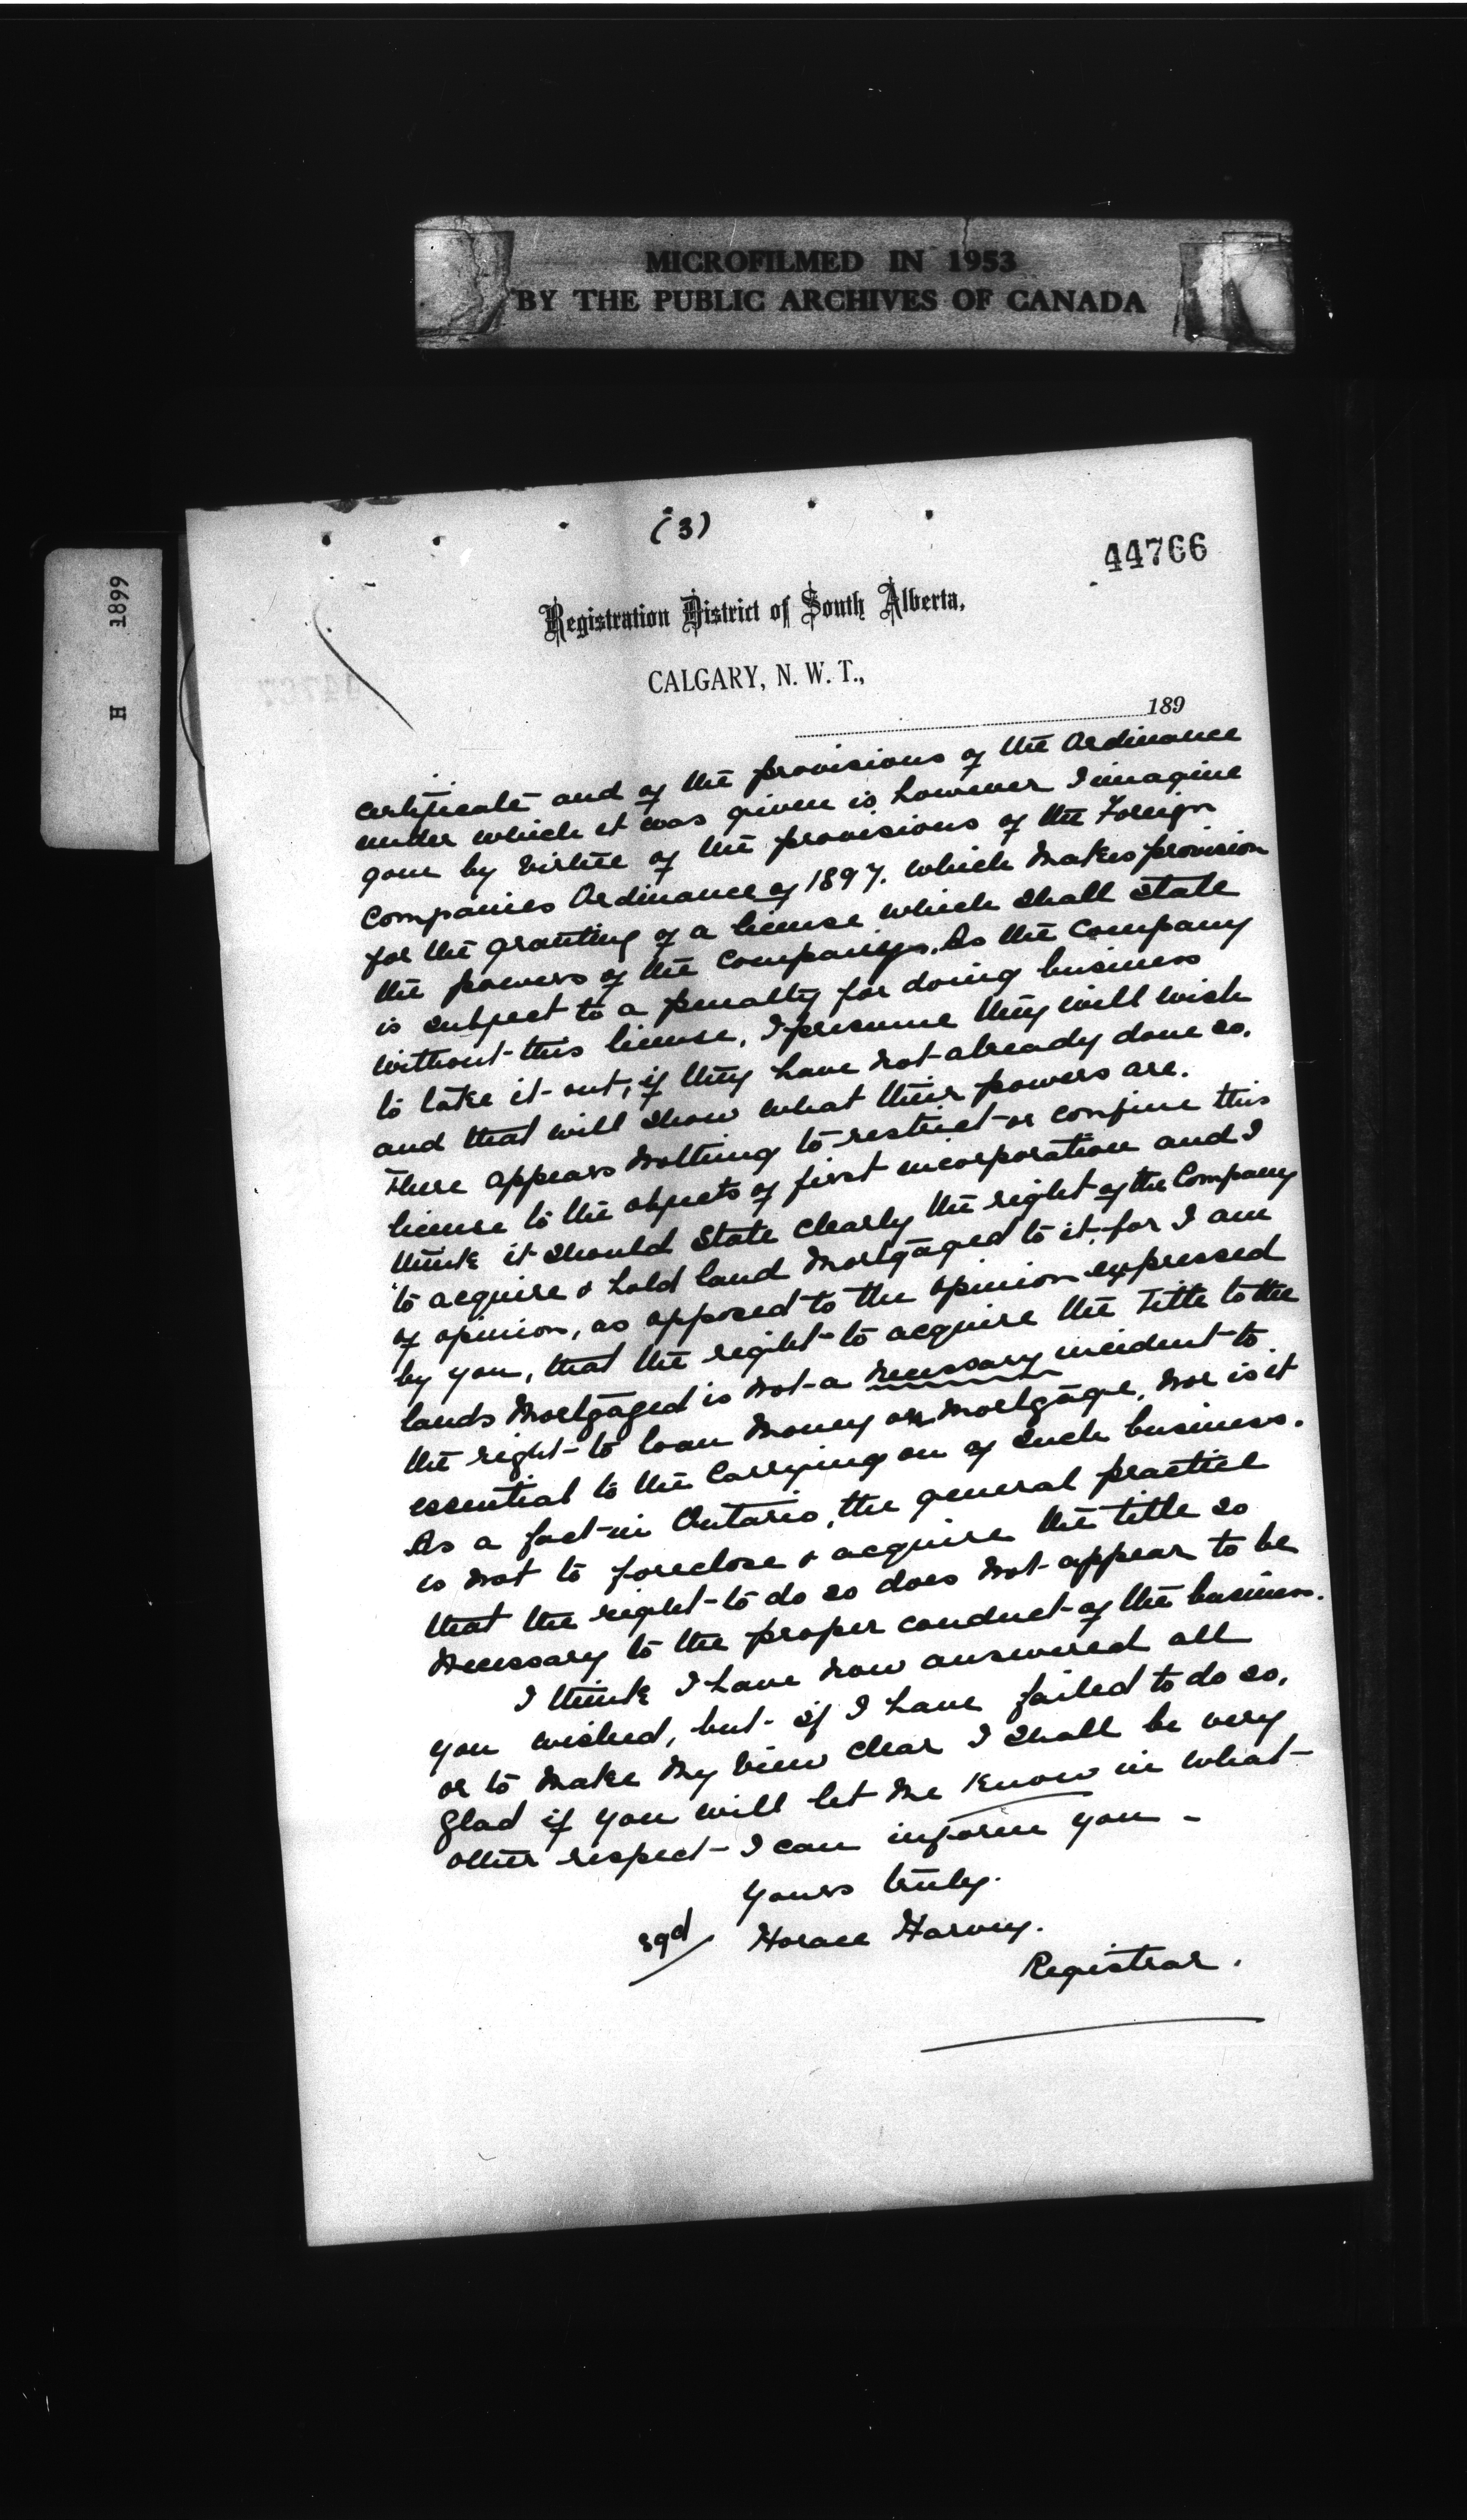 MICROFILMED IN 1953
BY THE PUBLIC ARCHIVES OF CANADA
H 1899
(3)
44766
Registration District of South Alberta,
CALGARY, N. W. T.,
189
certificate and of the provisions of the Ordinance
under which it was given is, however I imagine
gone by virtue of the provisions of the Foreign
Companies Ordinance of 1897. which makes provision
for the granting of a license which shall state
the powers of the Company. As the Company
is subject to a penalty for doing business
without this license, I presume they will wish
to take it out, if they have not already done so.
and that will show what their powers are.
There appears nothing to restrict or confine this
license to the objects of first incorporation and I
think it should state clearly the right of the Company
to acquire & hold land mortgaged to it, for I am
of opinion, as opposed to the opinion expressed
by you, that the right to acquire the title to the
lands mortgaged is not a necessary incident to
the right to loan money on mortgage, nor is it
essential to the carrying on of such business.
As a fact in Ontario, the general practice
is not to foreclose & acquire the title so
that the right to do so does not appear to be
necessary to the proper conduct of the business.
I think I have now answered all
you wished, but if I have failed to do so,
or to make my view clear I shall be very
glad if you will let me know in what
other respect I can inform you -
Yours truly.
sgd/ Horace Harvey.
Registrar.